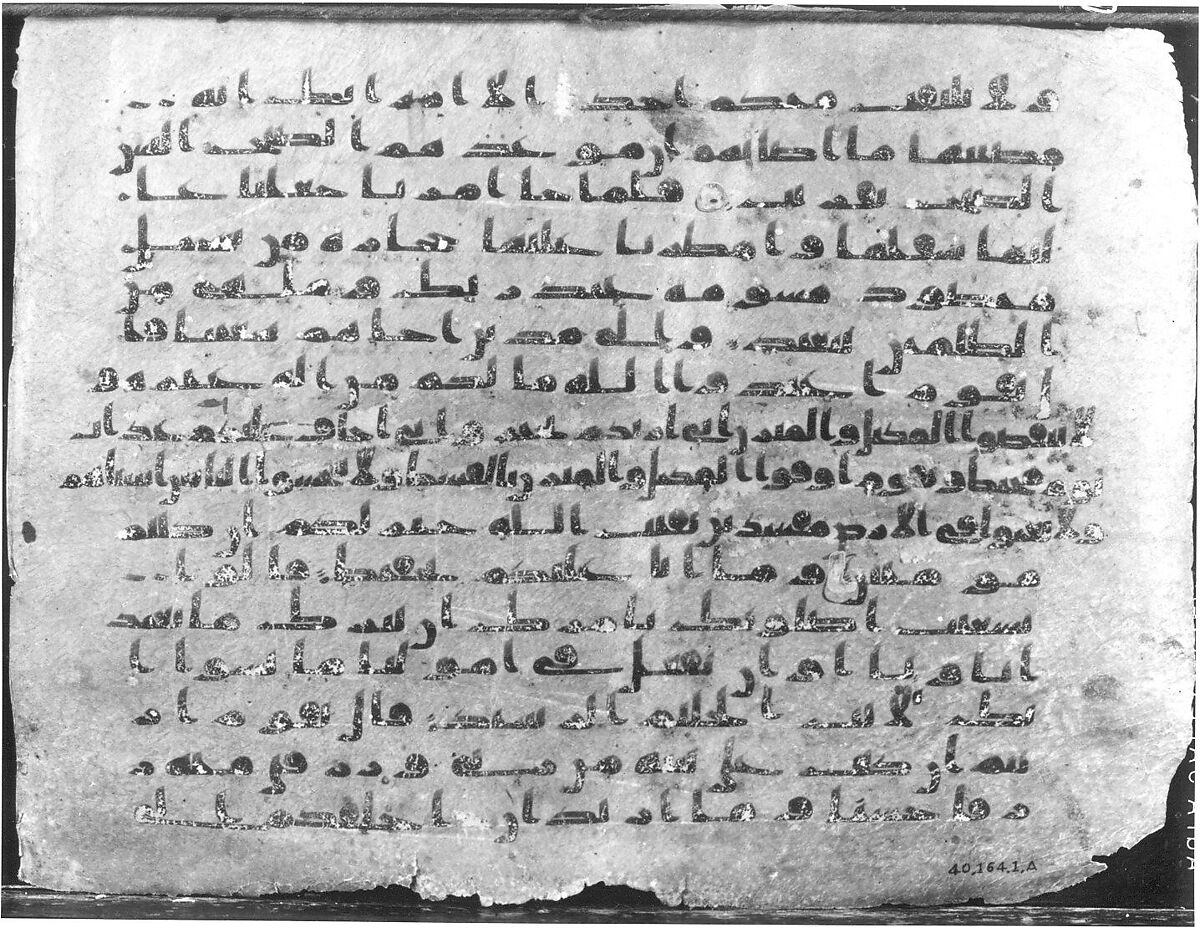 ولا يلتفت منكم احد الا امراتك انه
مصيبها ما اصابهم ان موعدهم الصبح اليس
الصبح بقريب فلما جا امرنا جعلنا عا
ليها سافلها وامطرنا عليها حجارة من سجيل
منضود مسومة عند ربك وما هي من
الظلمين ببعيد والى مدين اخاهم شعيبا قا
ل يقوم اعبدوا الله ما لكم من اله غيره و
لا تنقصوا المكيل والميزن اني اريكم بخير واني اخاف عليكم عذاب
يوم محيط ويقوم اوفوا المكيل والميزن بالقسط ولا تبخسوا الناس اشياهم
ولا تعثوا في الارض مفسدين بقيت الله خير لكم ان كنتم
مومنين وما انا عليكم بحفيظ قالوا
يشعيب اصلوتك تامرك ان نترك ما يعبد
اباونا او ان نفعل في امولنا ما نشوا ا
نك لانت الحليم الرشيد قال يقوم ارا
يتم ان كنت على بينة من ربي ورزقني منه ر
زقا حسنا وما اريد ان اخالفكم الى
40.164.1A